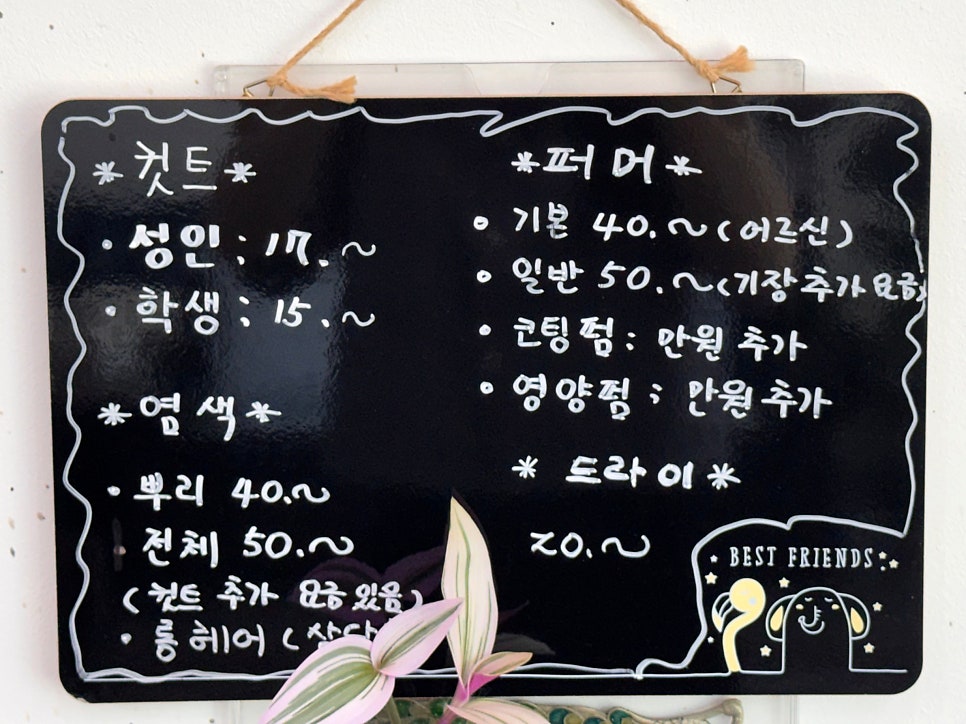 *컷트*
· 성인 : 17.~
· 학생 : 15.~
*염색*
· 뿌리 40.~
· 전체 50.~
(컷트 추가 요금있음)
· 롱헤어 (
*퍼머*
· 기본 40.~ (어르신)
· 일반 50.~ (기장추가요금)
· 코팅펌 : 만원 추가
· 영양펌 ; 만원추가
* 드라이 *
20.~
BEST FRIENDS